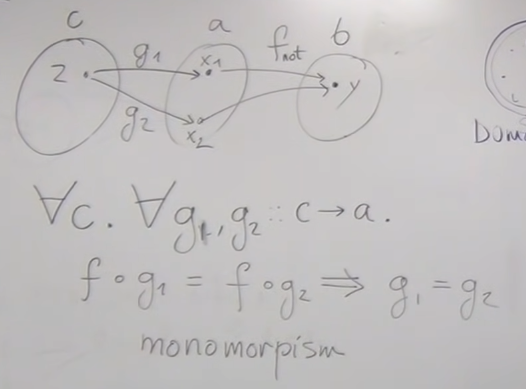 c a b
g₁ x₁ f not
z y
g₂ x₂
Dom
∀c. ∀g₁, g₂ :: c → a.
f ∘ g₁ = f ∘ g₂ ⇒ g₁ = g₂
monomorpism